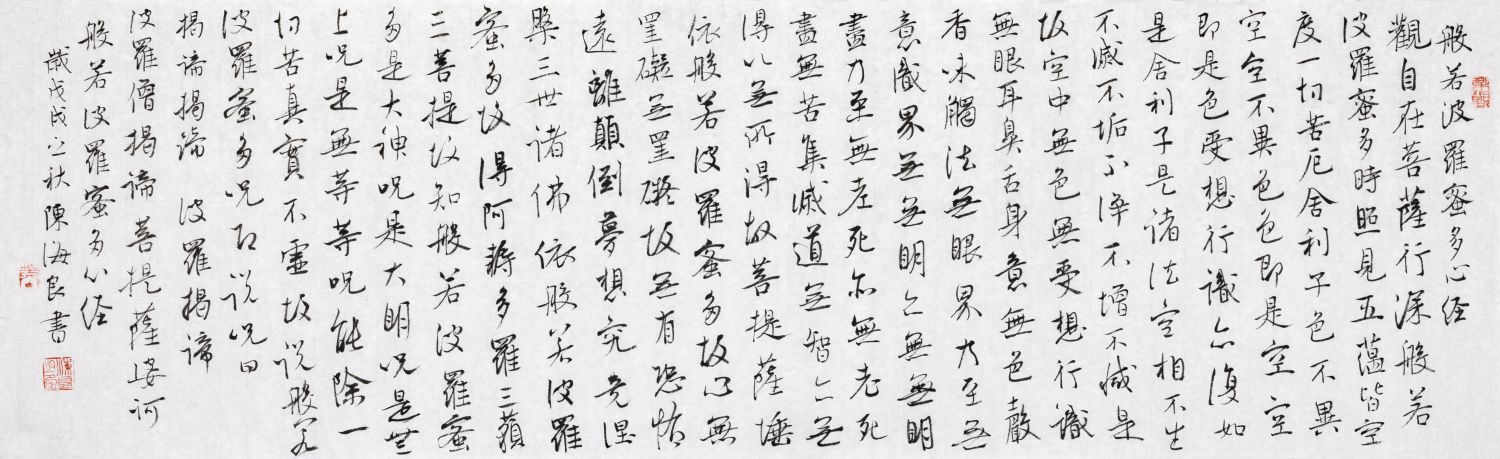 般若波羅蜜多心经
觀自在菩薩行深般若
波羅蜜多時照見五蘊皆空
度一切苦厄舍利子色不異
空空不異色色即是空空
即是色受想行識亦復如
是舍利子是诸法空相不生
不滅不垢不淨不增不减是
故空中無色無受想行識
無眼耳鼻舌身意無色聲
香味觸法無眼界乃至無
意識界無無明亦無無明
盡乃至無老死亦無老死
盡無苦集滅道無智亦無
得以無所得故菩提薩埵
依般若波羅蜜多故心無
罣礙無罣礙故無有恐怖
遠離顛倒夢想究竟涅
槃三世诸佛依般若波羅
蜜多故得阿耨多羅三藐
三菩提故知般若波羅蜜
多是大神呪是大明呪是無
上呪是無等等呪能除一
切苦真實不虛故说般若
波羅蜜多呪即说呪曰
揭谛揭谛 波羅揭谛
波羅僧揭谛菩提薩婆訶
般若波羅蜜多心经
歲戊戌之秋陳海良書